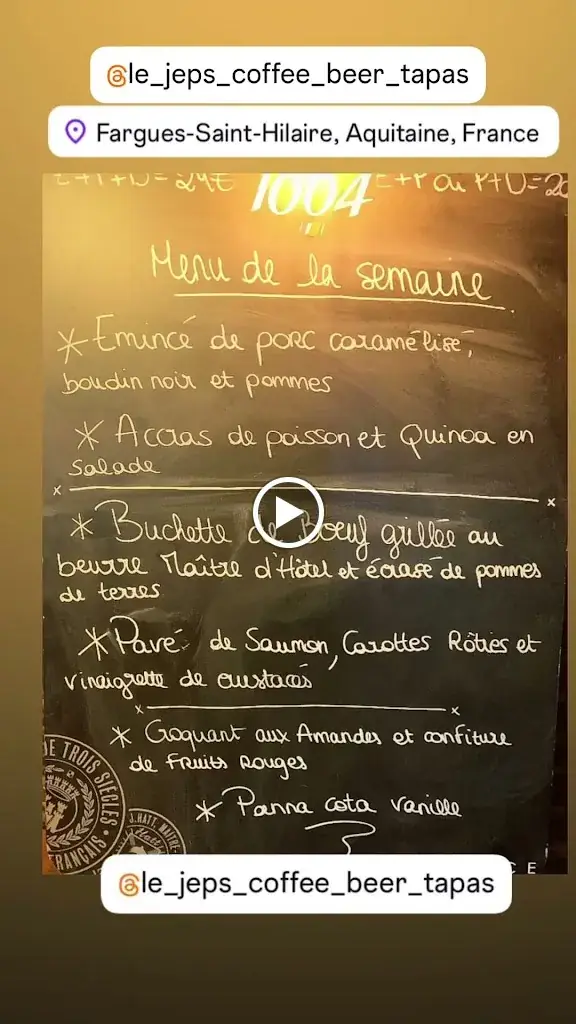 @le_jeps_coffee_beer_tapas
Fargues-Saint-Hilaire, Aquitaine, France
E+P+D=24€
1664
E+P ou P+D=20
Menu de la semaine
* Emincé de porc caramélisé,
boudin noir et pommes
* Accras de poisson et Quinoa en
salade
* Buchette de Boeuf grillée au
beurre Maître d'Hôtel et écrasé de pommes
de terres
* Pavé de Saumon, Carottes Rôties et
vinaigrette de crustacés
* Croquant aux Amandes et confiture
de Fruits Rouges
* Panna cota vanille
DE TROIS SIÈCLES
FRANÇAIS
J.HATT, MAÎTRE
Hatt
C E
@le_jeps_coffee_beer_tapas